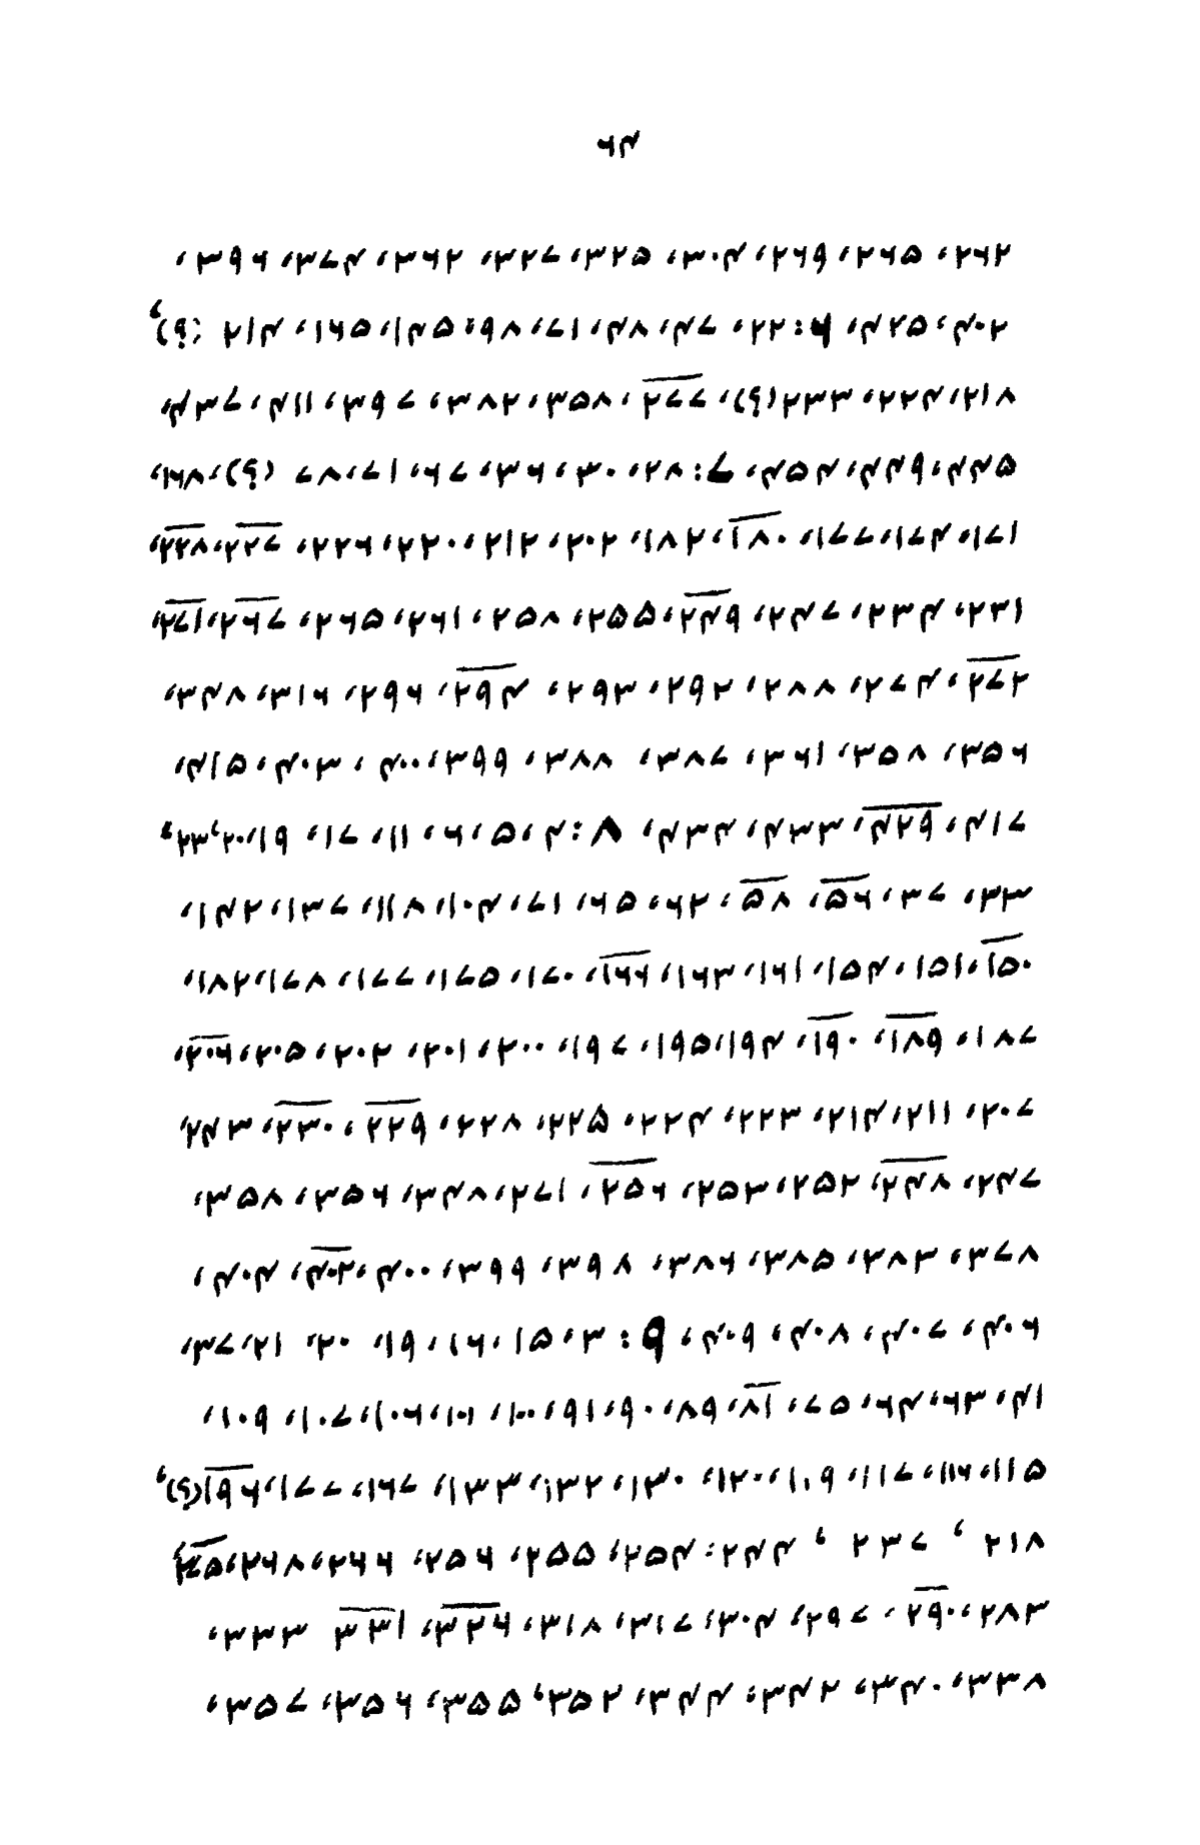 ۶۴
۲۶۲، ۲۶۵، ۲۶۹، ۳۰۴، ۳۲۵، ۳۲۷، ۳۶۲، ۳۷۴، ۳۹۶،
۴۰۲، ۴۲۵، ۶: ۲۲، ۴۷، ۴۸، ۷۱، ۹۸، ۱۴۵، ۱۶۵، ۲۱۴ (؟)،
۲۱۸، ۲۲۴، ۲۳۳(؟)، ۲۷۷، ۳۵۸، ۳۸۲، ۳۹۷، ۴۱۱، ۴۳۷،
۴۴۵، ۴۴۹، ۴۵۴، ۷: ۲۸، ۳۰، ۳۶، ۶۷، ۷۱، ۷۸ (؟)، ۱۶۸،
۱۷۱، ۱۷۴، ۱۷۷، ۱۸۰، ۱۸۲، ۲۰۲، ۲۱۲، ۲۲۰، ۲۲۶، ۲۲۷، ۲۲۸،
۲۳۱، ۲۳۴، ۲۴۷، ۲۴۹، ۲۵۵، ۲۵۸، ۲۶۱، ۲۶۵، ۲۶۷، ۲۷۱،
۲۷۲، ۲۷۴، ۲۸۸، ۲۹۲، ۲۹۳، ۲۹۴، ۲۹۶، ۳۱۶، ۳۴۸،
۳۵۶، ۳۵۸، ۳۶۱، ۳۸۷، ۳۸۸، ۳۹۹، ۴۰۰، ۴۰۳، ۴۱۵،
۴۱۷، ۴۲۹، ۴۳۳، ۴۳۴، ۸: ۴، ۵، ۶، ۱۱، ۱۷، ۱۹، ۲۰، ۲۳،
۳۳، ۳۷، ۵۶، ۵۸، ۶۲، ۶۵، ۷۱، ۱۰۴، ۱۱۸، ۱۳۷، ۱۴۲،
۱۵۰، ۱۵۱، ۱۵۴، ۱۶۱، ۱۶۳، ۱۶۶، ۱۷۰، ۱۷۵، ۱۷۷، ۱۷۸، ۱۸۲،
۱۸۷، ۱۸۹، ۱۹۰، ۱۹۴، ۱۹۵، ۱۹۷، ۲۰۰، ۲۰۱، ۲۰۲، ۲۰۵، ۲۰۶،
۲۰۷، ۲۱۱، ۲۱۴، ۲۲۳، ۲۲۴، ۲۲۵، ۲۲۸، ۲۲۹، ۲۳۰، ۲۴۳،
۲۴۷، ۲۴۸، ۲۵۲، ۲۵۳، ۲۵۶، ۲۷۱، ۳۴۸، ۳۵۶، ۳۵۸،
۳۷۸، ۳۸۳، ۳۸۵، ۳۸۶، ۳۹۸، ۳۹۹، ۴۰۰، ۴۰۲، ۴۰۴،
۴۰۶، ۴۰۷، ۴۰۸، ۴۰۹، ۹: ۳، ۱۵، ۱۶، ۱۹، ۲۰، ۲۱، ۳۷،
۴۱، ۶۳، ۶۴، ۷۵، ۸۱، ۸۹، ۹۰، ۹۱، ۱۰۰، ۱۰۱، ۱۰۶، ۱۰۷، ۱۰۹،
۱۱۵، ۱۱۶، ۱۱۷، ۱۱۹، ۱۲۰، ۱۳۰، ۱۳۲، ۱۳۳، ۱۶۷، ۱۷۷، ۱۹۶(؟)،
۲۱۸، ۲۳۷، ۲۴۴: ۲۵۴، ۲۵۵، ۲۵۶، ۲۶۶، ۲۶۸، ۲۷۵،
۲۸۳، ۲۹۰، ۲۹۷، ۳۰۴، ۳۱۷، ۳۱۸، ۳۲۶، ۳۳۱ ۳۳۳،
۳۳۸، ۳۴۰، ۳۴۲، ۳۴۴، ۳۵۲، ۳۵۵، ۳۵۶، ۳۵۷،